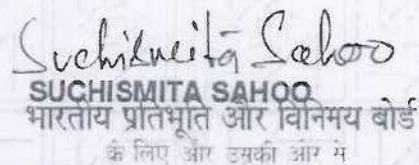 Suchismita Sahoo
SUCHISMITA SAHOO
भारतीय प्रतिभूति और विनिमय बोर्ड
के लिए और उसकी ओर से